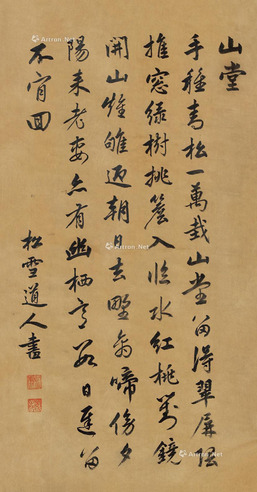 山堂
手種青松一萬栽山堂留得翠屏隈
推窗綠樹排簷入臨水紅桃對鏡
開山雉雊迎朝日去野禽啼傍夕
陽來老妻亦有幽栖意數日遲留
不肯回
松雪道人書
Artron.Net